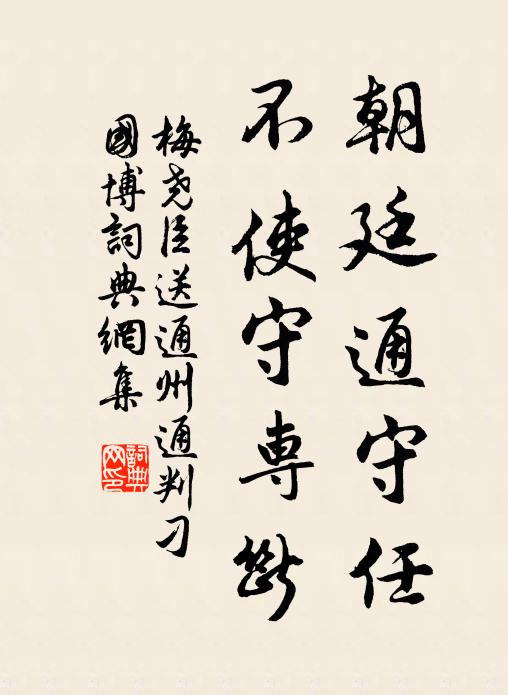 朝廷通守任
不使守專斷
梅堯臣送通州通判刁
國博詞典網集
詞典网印